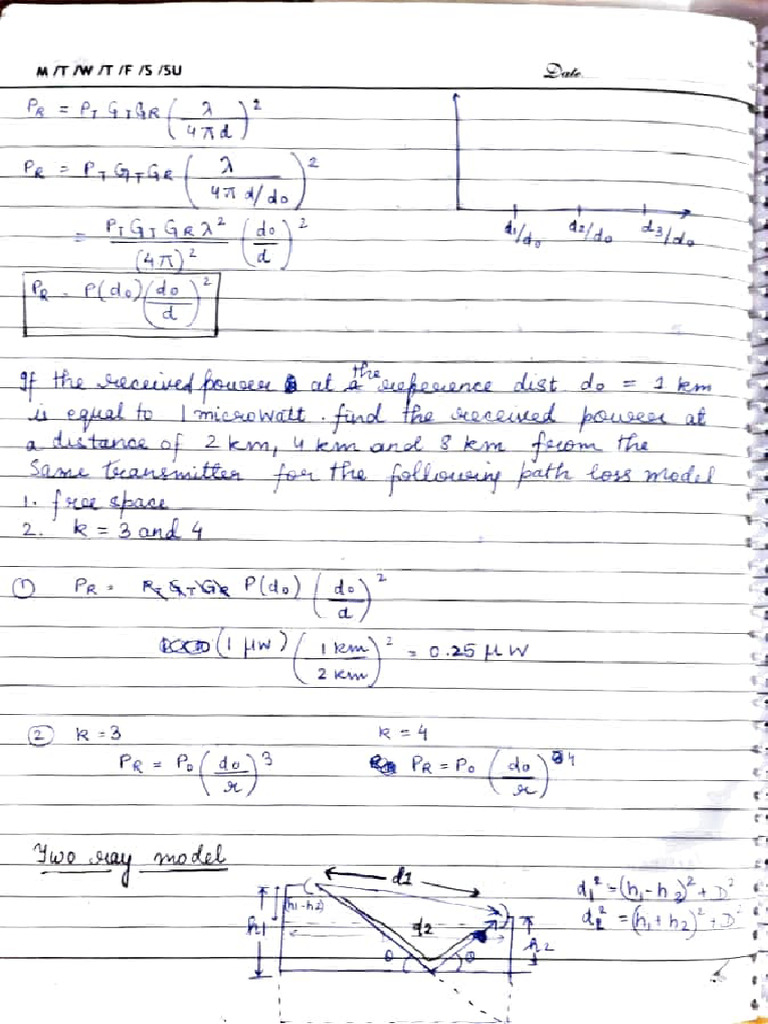 M /T /W /T /F /S /SU Date
P_R = P_T G_T G_R (λ / 4πd)^2
P_R = P_T G_T G_R (λ / 4π d/d₀)^2
= P_T G_T G_R λ² / (4π)² (d₀ / d)^2
d1/d₀ d2/d₀ d3/d₀
P_R = P(d₀) (d₀ / d)^2
If the received power at a the reference dist d₀ = 1 km
is equal to 1 microwatt. find the received power at
a distance of 2 km, 4 km and 8 km from the
same transmitter for the following path loss model
1. free space
2. k = 3 and 4
① P_R = P_T G_T G_R P(d₀) (d₀ / d)^2
(1 μW) (1 km / 2 km)^2 = 0.25 μW
② k = 3 k = 4
P_R = P₀ (d₀ / r)^3 P_R = P₀ (d₀ / r)^4
Two ray model
d1
d₁² = (h₁-h₂)² + D²
(h1-h2)
h1
d2
d₂² = (h₁+h₂)² + D²
h2
θ θ